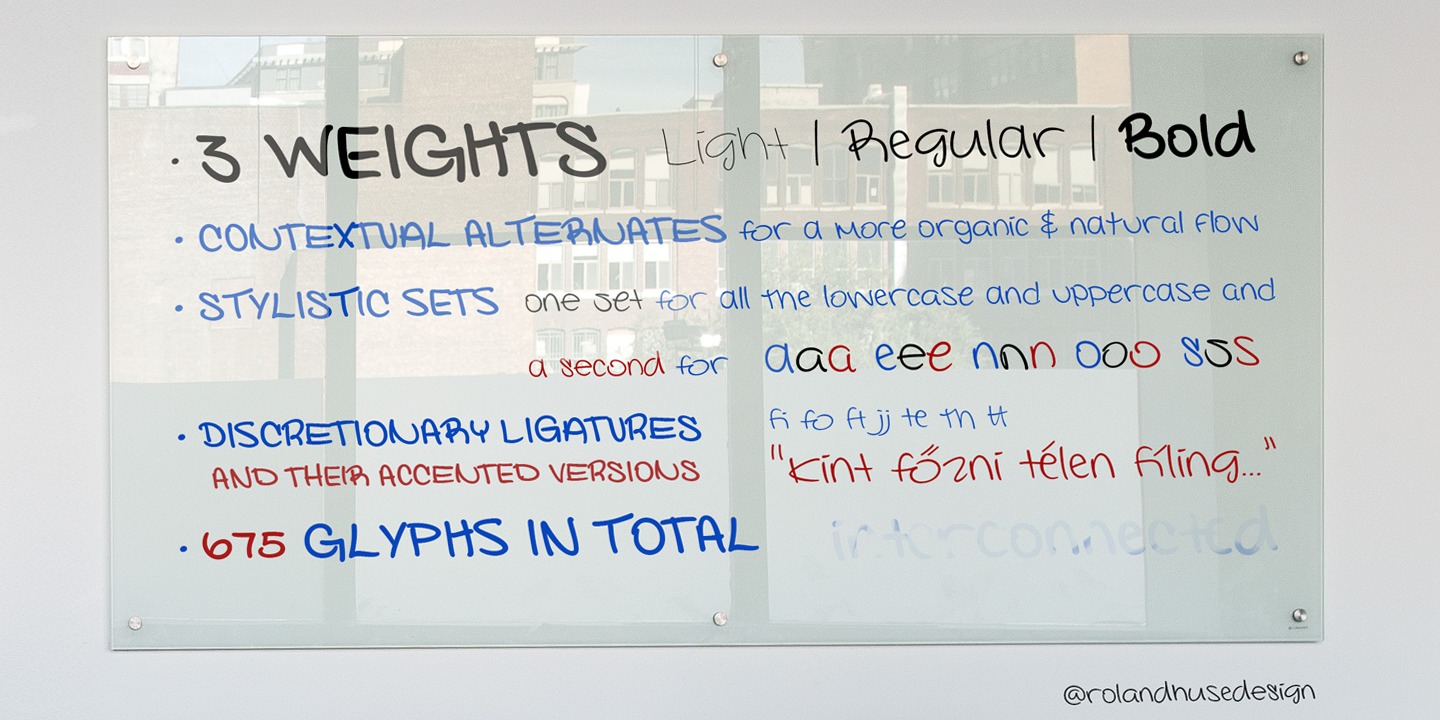 · 3 WEIGHTS Light | Regular | Bold
· CONTEXTUAL ALTERNATES for a more organic & natural flow
· STYLISTIC SETS one set for all the lowercase and uppercase and
a second for aaa eee nnn ooo sss
· DISCRETIONARY LIGATURES fi fo ft jj te th tt
AND THEIR ACCENTED VERSIONS "Kint főzni télen fíling..."
· 675 GLYPHS IN TOTAL interconnected
@rolandhusedesign